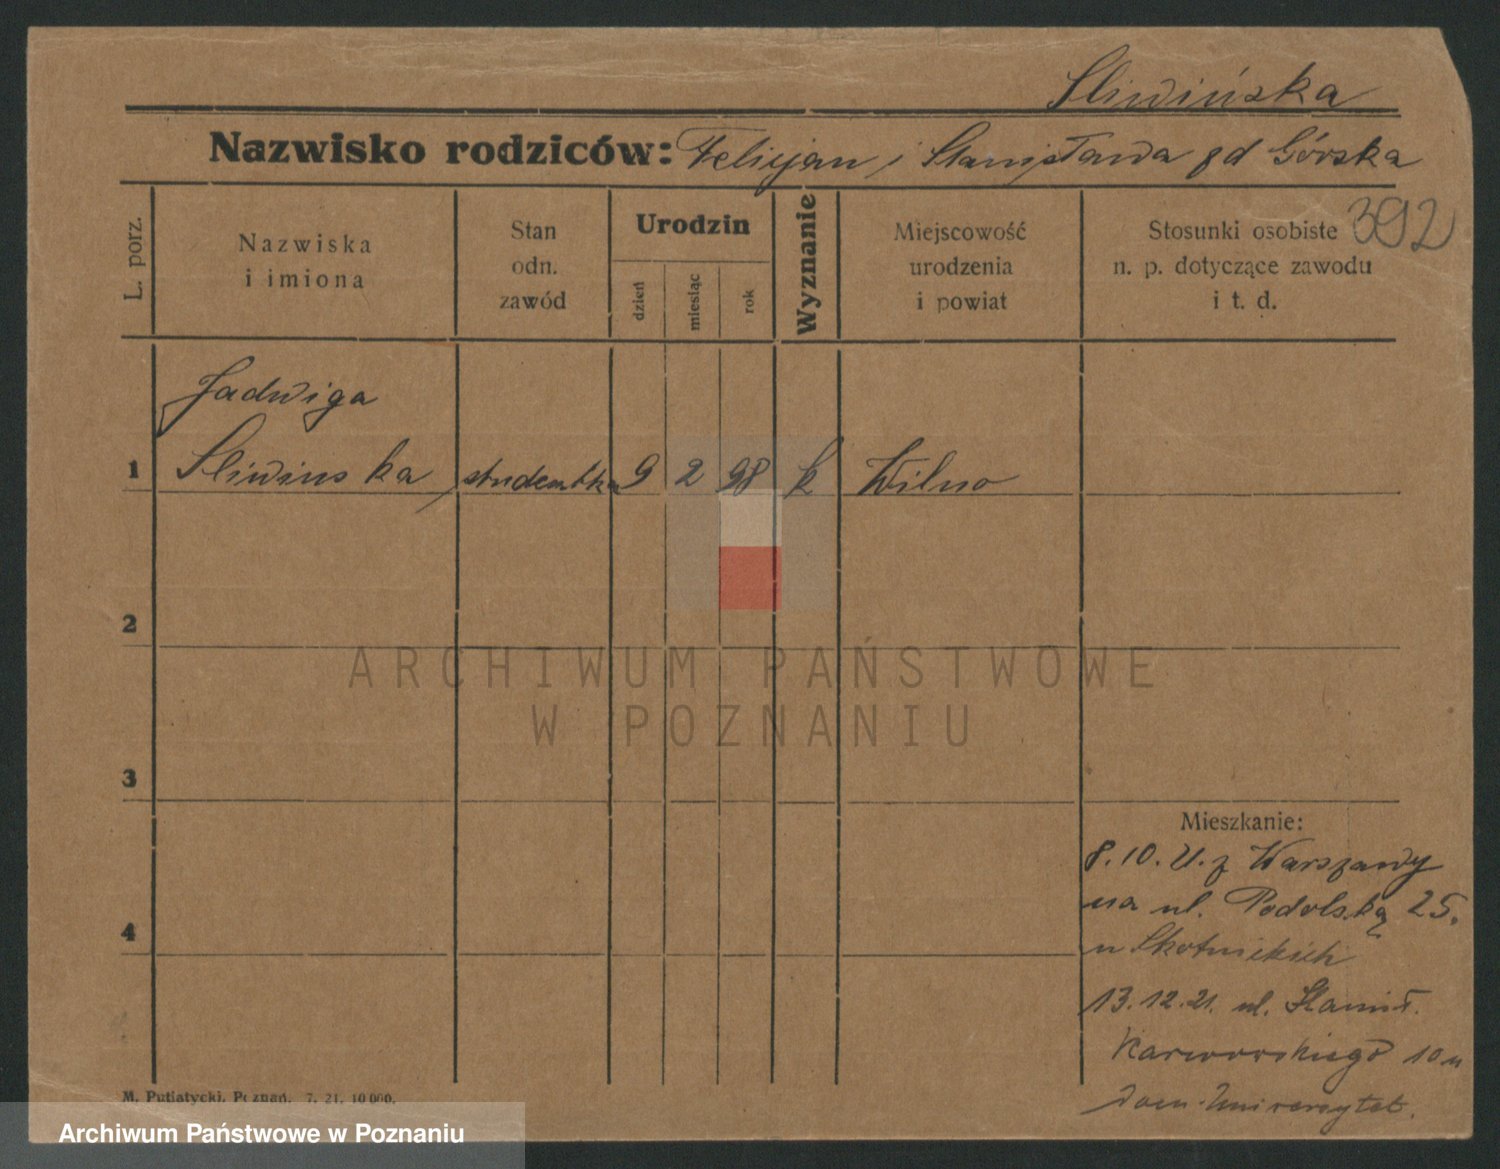 Śliwińska
Nazwisko rodziców: Felicjan i Stanisława gd Górska
392
L. porz.
Nazwiska
i imiona
Stan
odn.
zawód
Urodzin
dzień
miesiąc
rok
Wyznanie
Miejscowość
urodzenia
i powiat
Stosunki osobiste
n. p. dotyczące zawodu
i t. d.
Jadwiga
1 Śliwinska studentka 9 2 98 k Wilno
2
ARCHIWUM PAŃSTWOWE
W POZNANIU
3
Mieszkanie:
8.10.21. z Warszawy
na ul. Podolską 25.
4
u Skotnickich
13.12.21. ul. Stanisł.
Karwowskiego 10 u
dom. Uniwersytet.
M. Putiatycki, Poznań. 7. 21. 10 000.
Archiwum Państwowe w Poznaniu